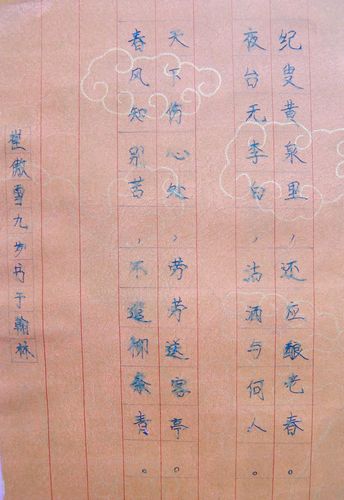 纪叟黄泉里，还应酿老春。
夜台无李白，沽酒与何人。
天下伤心处，劳劳送客亭。
春风知别苦，不遣柳条青。
崔傲雪九岁书于翰林